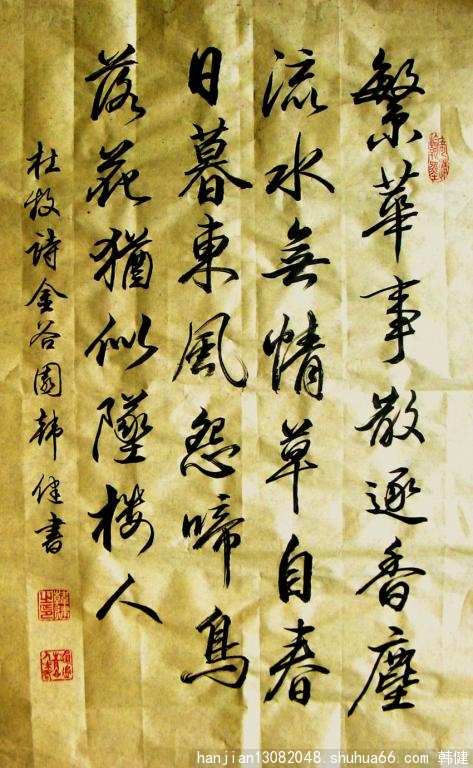 繁華事散逐香塵
流水無情草自春
日暮東風怨啼鳥
落花猶似墜樓人
杜牧詩金谷園韩健書
hanjian13082048.shuhua66.com 韩健